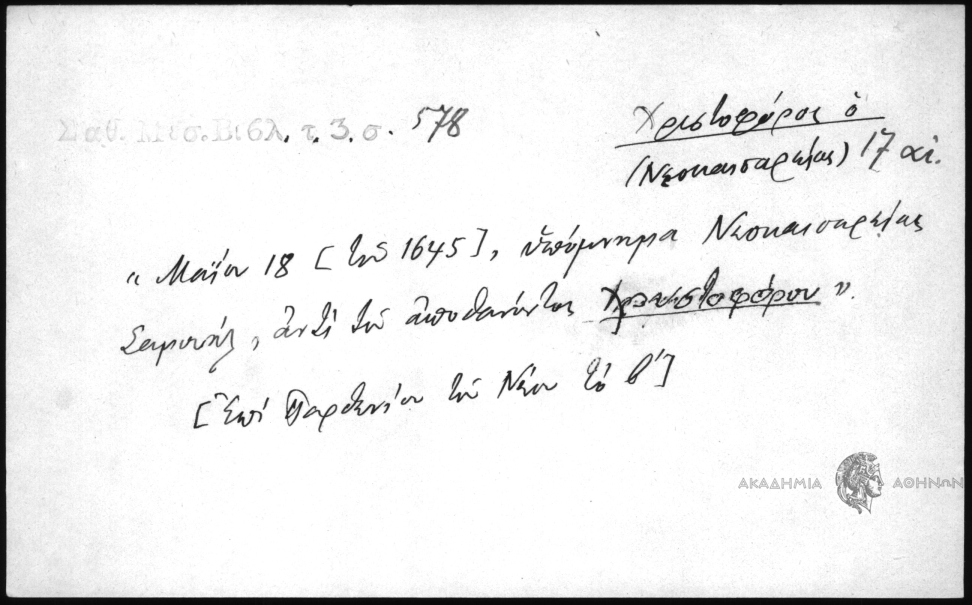 Σαθ. Μεσ. Βιβλ. τ. 3. σ. 578
Χριστοφόρος ὁ
(Νεοκαισαρείας) 17 αἰ.
“ Μαΐου 18 [τοῦ 1645], ὑπόμνημα Νεοκαισαρείας
Σαμουήλ, ἀντὶ τοῦ ἀποθανόντος Χριστοφόρου ”.
[Ἐπὶ Παρθενίου τοῦ Νέου τὸ β']
ΑΚΑΔΗΜΙΑ ΑΘΗΝΩΝ